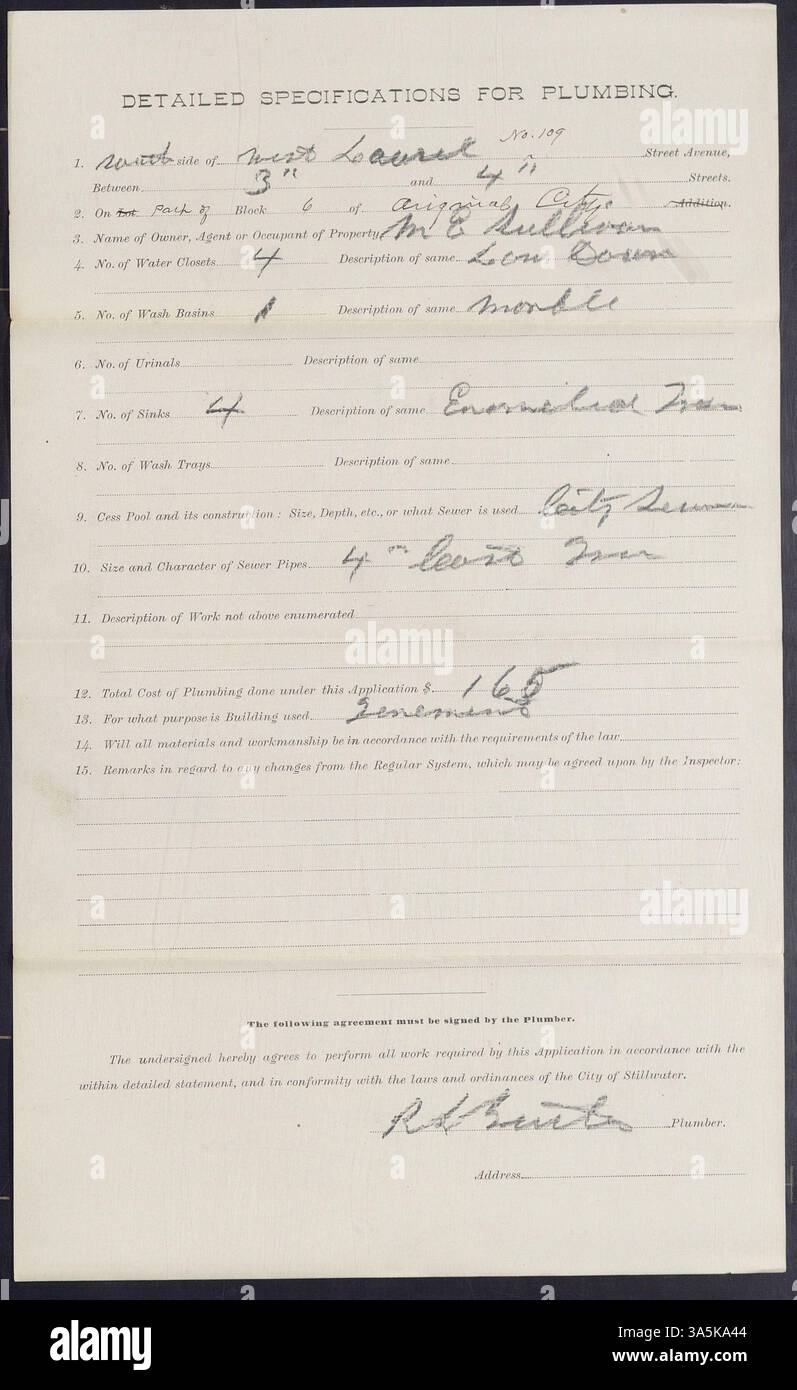 DETAILED SPECIFICATIONS FOR PLUMBING.
No. 109
1. side of West Laurel Street Avenue,
Between 3" and 4" Streets.
2. On Lot Part of Block 6 of Original City Addition.
3. Name of Owner, Agent or Occupant of Property M E Sullivan
4. No. of Water Closets 4 Description of same Low Down
5. No. of Wash Basins 1 Description of same Marble
6. No. of Urinals Description of same
7. No. of Sinks 4 Description of same Enameled Iron
8. No. of Wash Trays Description of same
9. Cess Pool and its construction: Size, Depth, etc., or what Sewer is used City Sewer
10. Size and Character of Sewer Pipes 4" Cast Iron
11. Description of Work not above enumerated
12. Total Cost of Plumbing done under this Application $ 165
13. For what purpose is Building used Tenement
14. Will all materials and workmanship be in accordance with the requirements of the law
15. Remarks in regard to any changes from the Regular System, which may be agreed upon by the Inspector:
The following agreement must be signed by the Plumber.
The undersigned hereby agrees to perform all work required by this Application in accordance with the
within detailed statement, and in conformity with the laws and ordinances of the City of Stillwater.
Plumber.
Address
alamy
Image ID: 3A5KA44
www.alamy.com